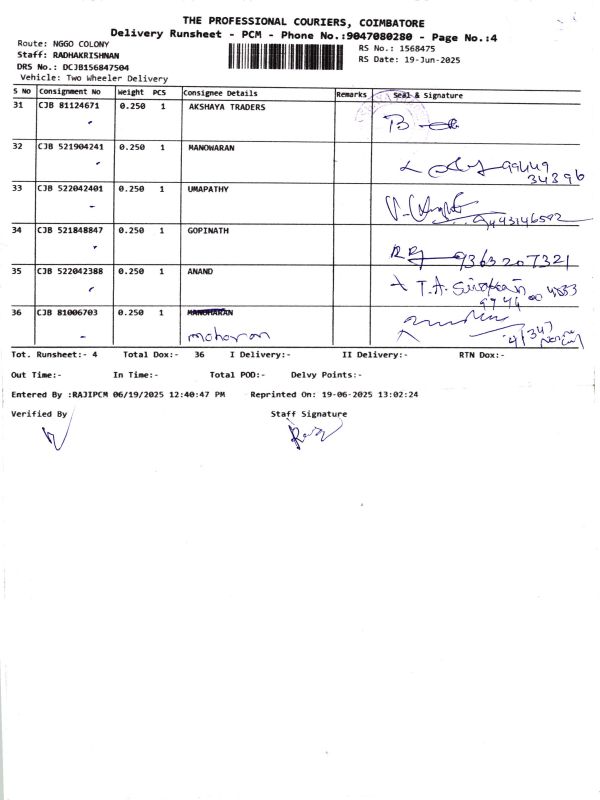 THE PROFESSIONAL COURIERS, COIMBATORE
Delivery Runsheet - PCM - Phone No.:9047080280 - Page No.:4
Route: NGGO COLONY
RS No.: 1568475
Staff: RADHAKRISHNAN
RS Date: 19-Jun-2025
DRS No.: DCJB156847504
Vehicle: Two Wheeler Delivery
S No Consignment No Weight PCS Consignee Details Remarks Seal & Signature
31 CJB 81124671 0.250 1 AKSHAYA TRADERS
32 CJB 521904241 0.250 1 MANOWARAN 99449
34396
33 CJB 522042401 0.250 1 UMAPATHY 9443146592
34 CJB 521848847 0.250 1 GOPINATH 9363207321
35 CJB 522042388 0.250 1 ANAND T.A.
36 CJB 81006703 0.250 1 MANOHARAN
moharan
Tot. Runsheet:- 4 Total Dox:- 36 I Delivery:- II Delivery:- RTN Dox:-
Out Time:- In Time:- Total POD:- Delvy Points:-
Entered By :RAJIPCM 06/19/2025 12:40:47 PM Reprinted On: 19-06-2025 13:02:24
Verified By Staff Signature